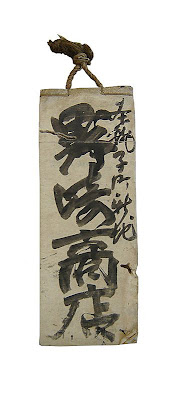 本銚子町新地
野崎商店